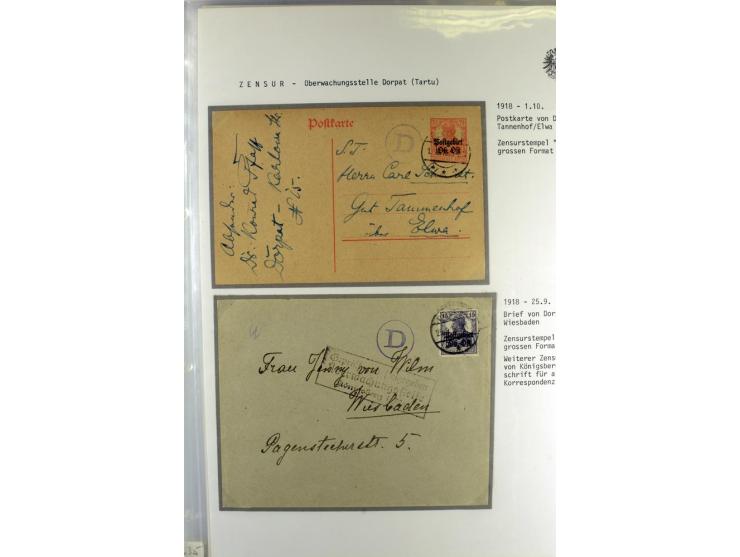 ZENSUR - Überwachungsstelle Dorpat (Tartu)
1918 - 1.10.
Postkarte von D
Tannenhof/Elwa
Zensurstempel "
grossen Format
Postkarte
D
Postgebiet
Ob. Ost
S.T.
Herrn Carl
Gut Tammenhof
über Elwa.
Absender:
Dr. Konrad
Dorpat - Karlowa
# 15.
1918 - 25.9.
Brief von Dor
Wiesbaden
Zensurstempel
grossen Forma
Weiterer Zensu
von Königsber
schrift für a
Korrespondenz
D
15 15
Postgebiet
Ob. Ost
Frau Jenny von Wilm
Wiesbaden
Pagenstecherstr. 5.